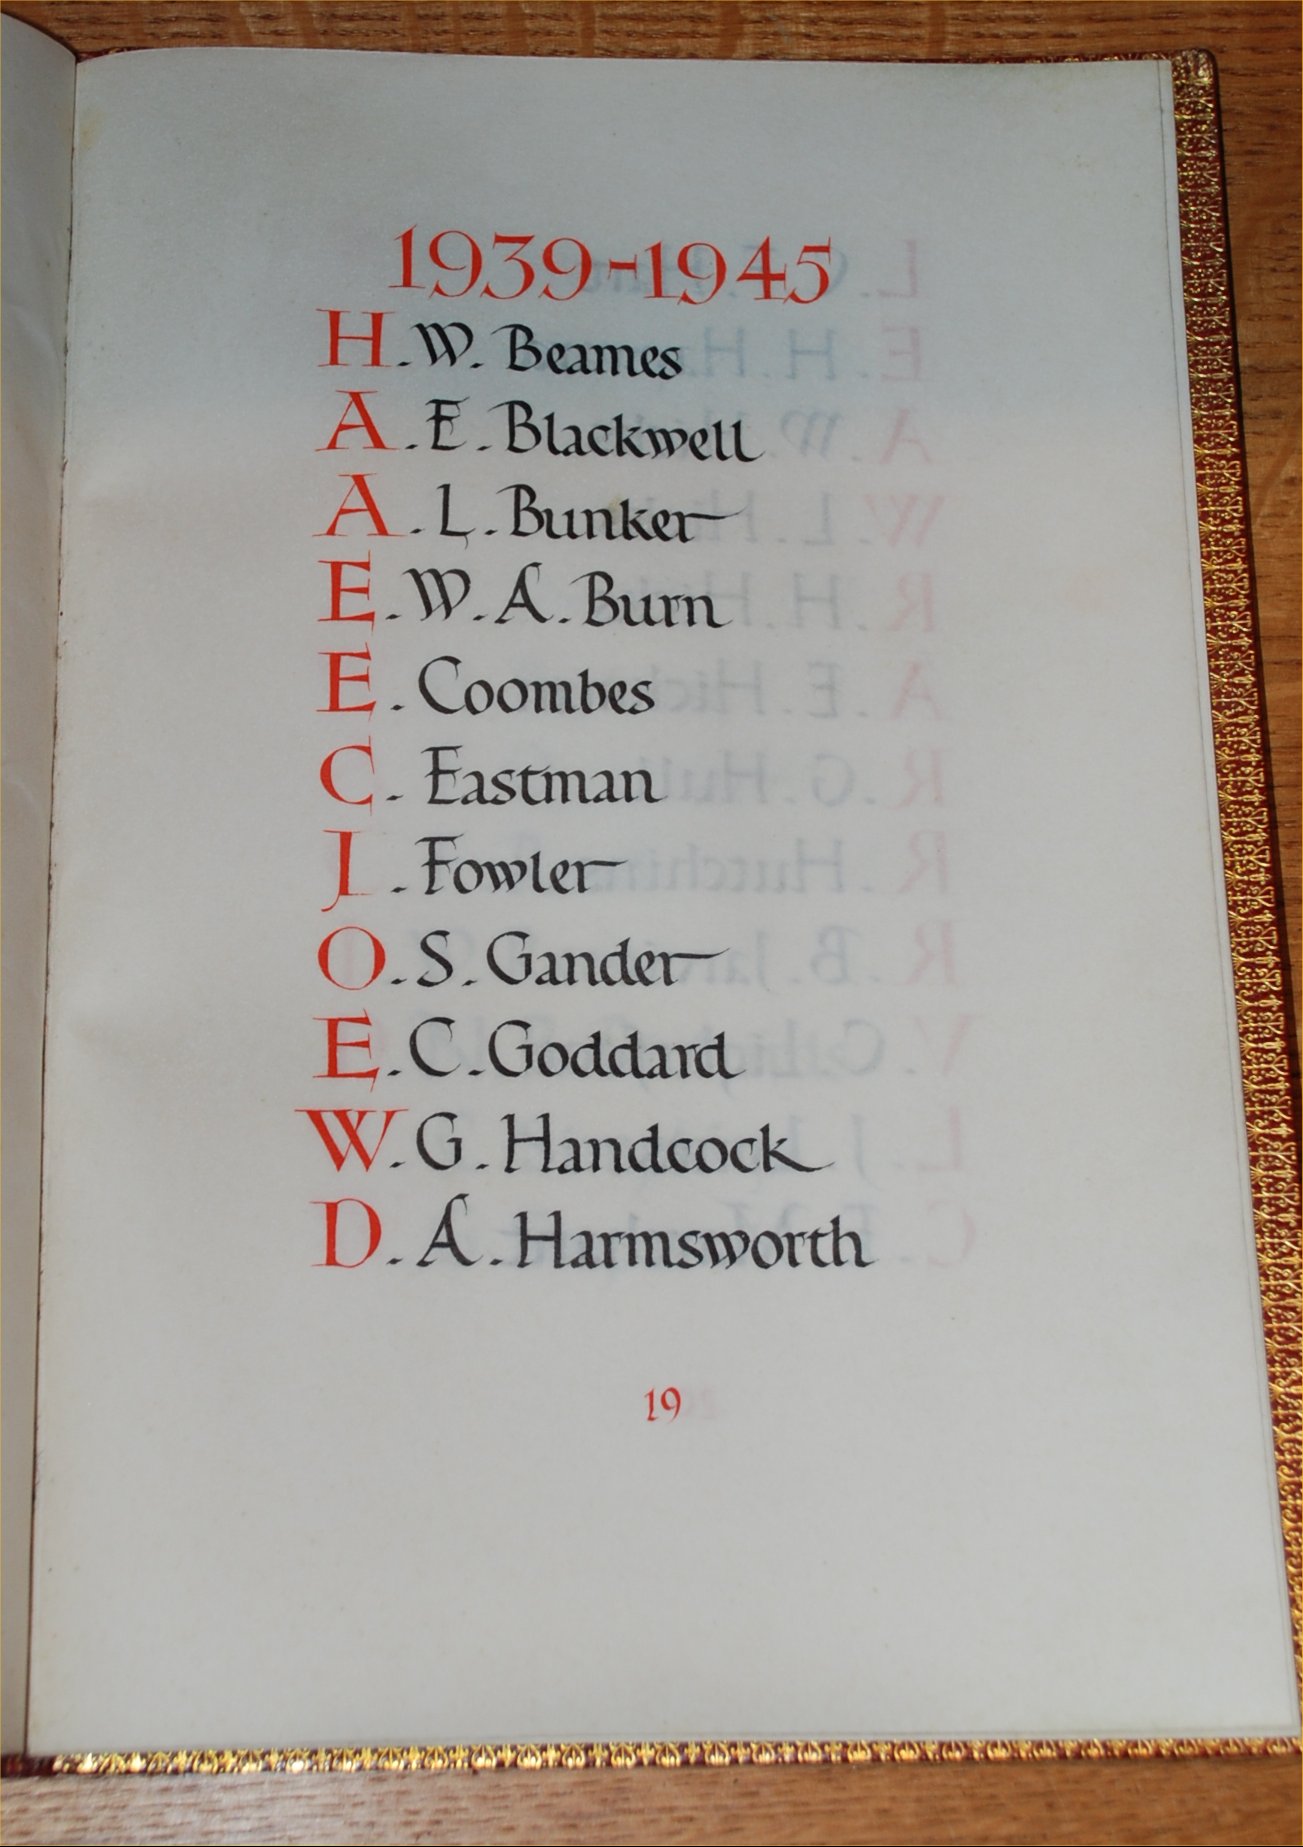 1939-1945
H. W. Beames
A. E. Blackwell
A. L. Bunker
E. W. A. Burn
E. Coombes
C. Eastman
J. Fowler
O. S. Gander
E. C. Goddard
W. G. Handcock
D. A. Harmsworth
19